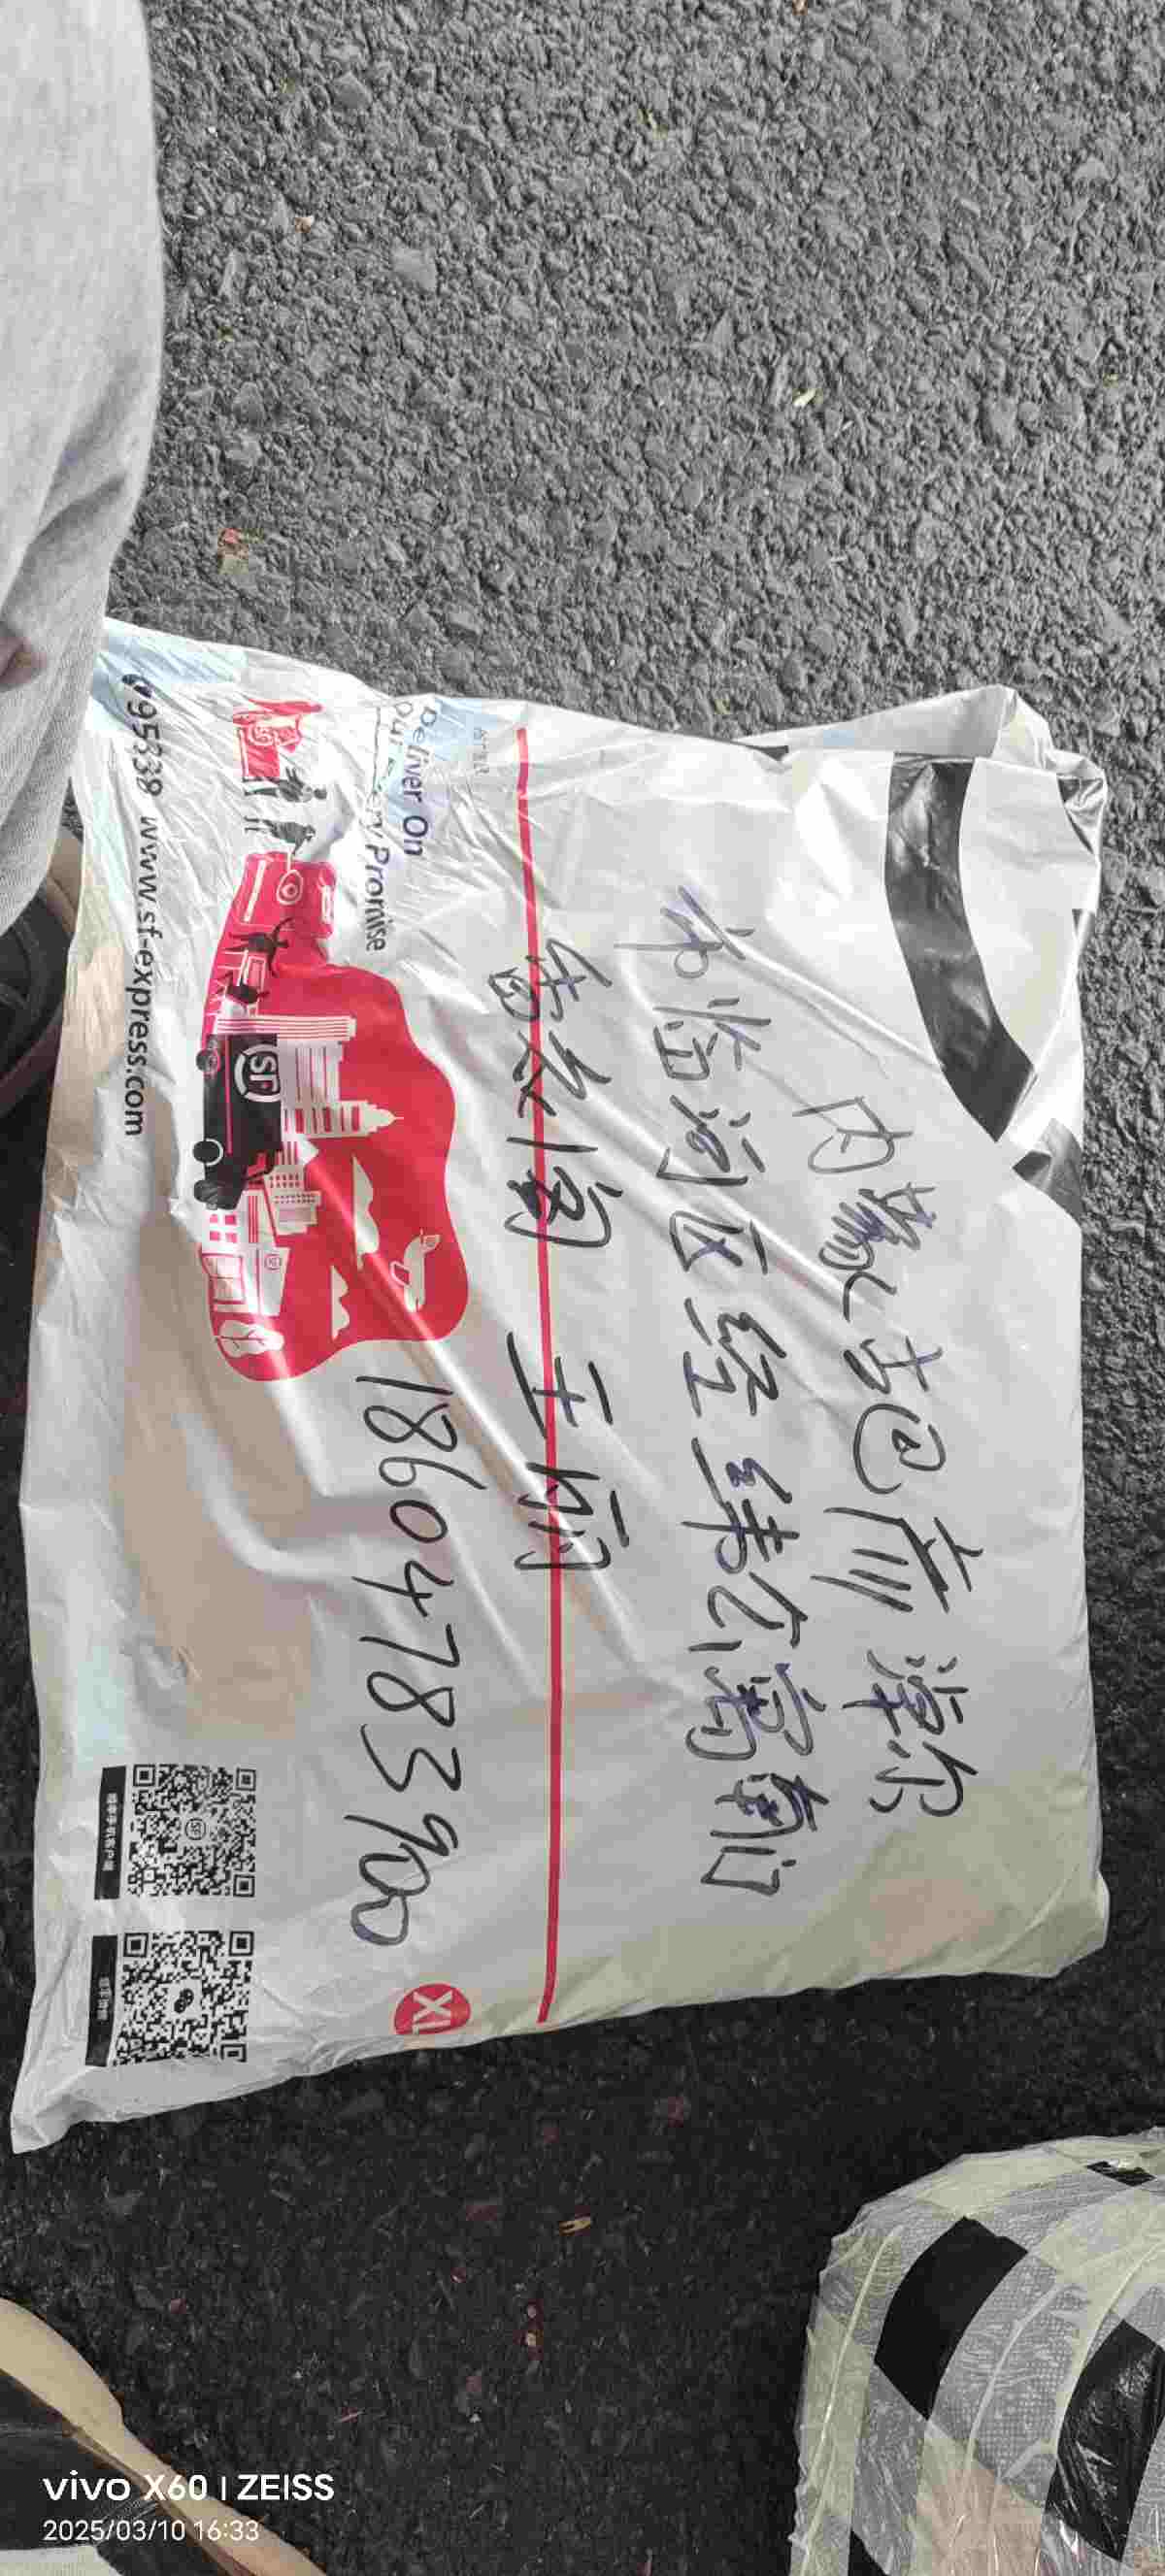 内蒙古巴彦淖尔
市临河区经纬公寓南门
香衣阁 王丽
18604783900
Deliver On
Our Every Promise
XL
SF
95338 www.sf-express.com
vivo X60 | ZEISS
2025/03/10 16:33